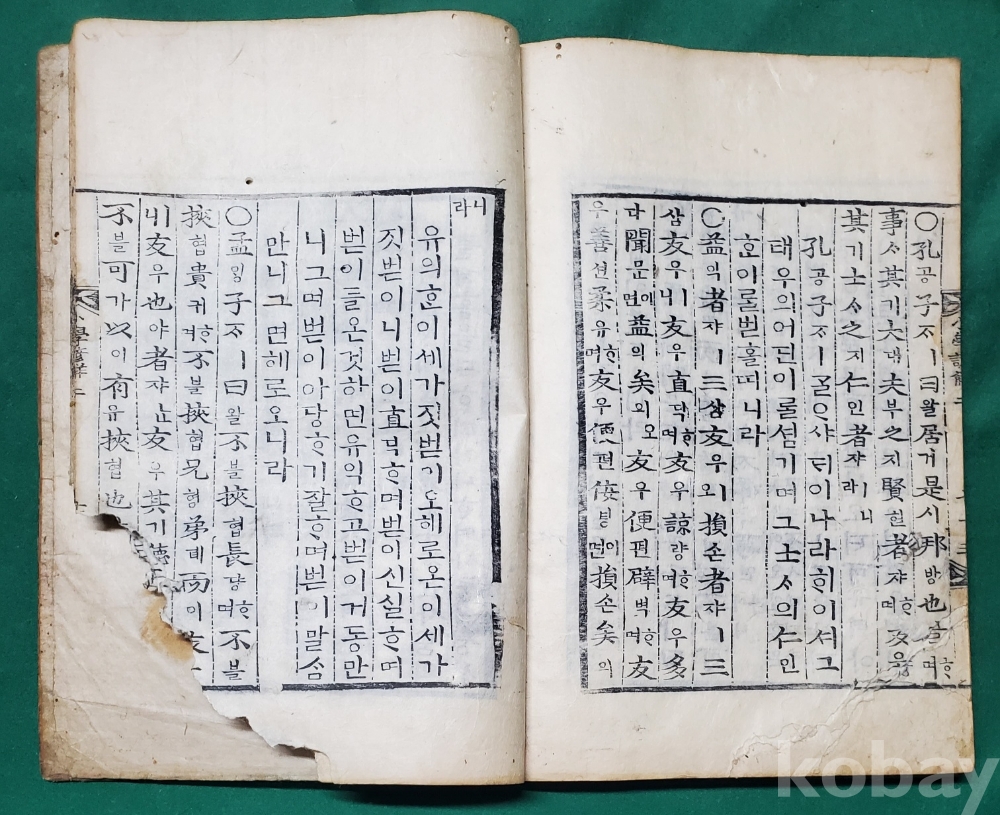 ○孔공子ᄌᆞㅣ曰왈居거是시邦방也야ᄒᆞ며
事ᄉᆞ其기大대夫부之지賢현者쟈ᄒᆞ며友우
其기士ᄉᆞ之지仁인者쟈ㅣ니라
孔공子ᄌᆞㅣᄀᆞᆯᄋᆞ샤ᄃᆡ이나라ᄒᆡ이셔그
태우의어딘이ᄅᆞᆯ셤기며그士ᄉᆞ의仁인
ᄒᆞᆫ이ᄅᆞᆯ벋ᄒᆞᆯ띠니라
○益익者쟈ㅣ三삼友우ㅣ오損손者쟈ㅣ三
삼友우ㅣ니友우直딕ᄒᆞ며友우諒량ᄒᆞ며友우多
다聞문이면益익矣의오友우便편辟벽ᄒᆞ며友
우善션柔유ᄒᆞ며友우便편佞녕이면損손矣의
니라
유익ᄒᆞᆫ이세가짓벋이오해로온이세가
짓벋이니벋이直딕ᄒᆞ며벋이신실ᄒᆞ며
벋이들온것하면유익ᄒᆞ고벋이거동만
니그며벋이아당ᄒᆞ기잘ᄒᆞ며벋이말ᄉᆞᆷ
만니그면해로오니라
○孟ᄆᆡᆼ子ᄌᆞㅣ曰왈不불挾협長댱ᄒᆞ며不불
挾협貴귀ᄒᆞ며不불挾협兄형弟뎨而이友우
ㅣ니友우也야者쟈ᄂᆞᆫ友우其기德덕
不불可가以이有유挾협也
小學諺解 二
kobay